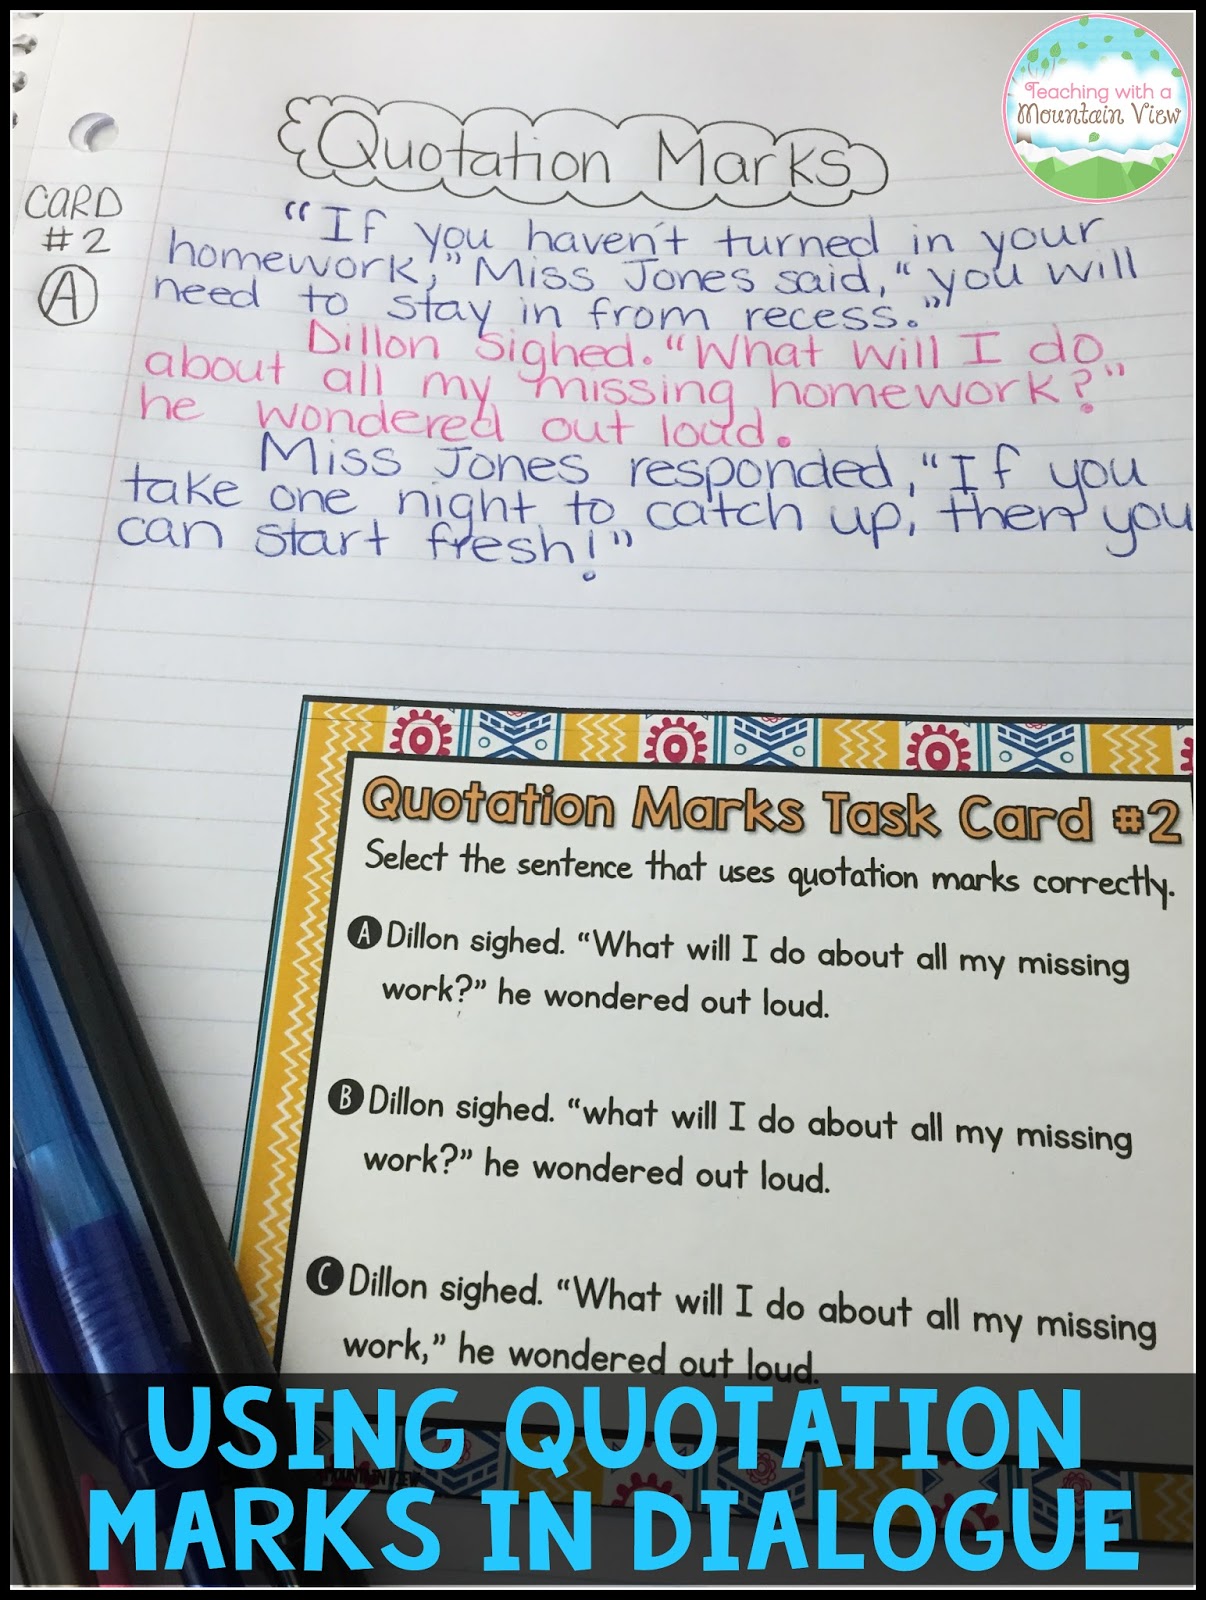 Teaching with a
Mountain View
Quotation Marks
CARD
#2
A
"If you haven't turned in your
homework," Miss Jones said, "you will
need to stay in from recess."
Dillon sighed. "What will I do
about all my missing homework?"
he wondered out loud.
Miss Jones responded, "If you
take one night to catch up, then you
can start fresh!"
Quotation Marks Task Card #2
Select the sentence that uses quotation marks correctly.
A Dillon sighed. “What will I do about all my missing
work?” he wondered out loud.
B Dillon sighed. “what will I do about all my missing
work?” he wondered out loud.
C Dillon sighed. “What will I do about all my missing
work,” he wondered out loud.
MOUNTAIN VIEW
USING QUOTATION
MARKS IN DIALOGUE